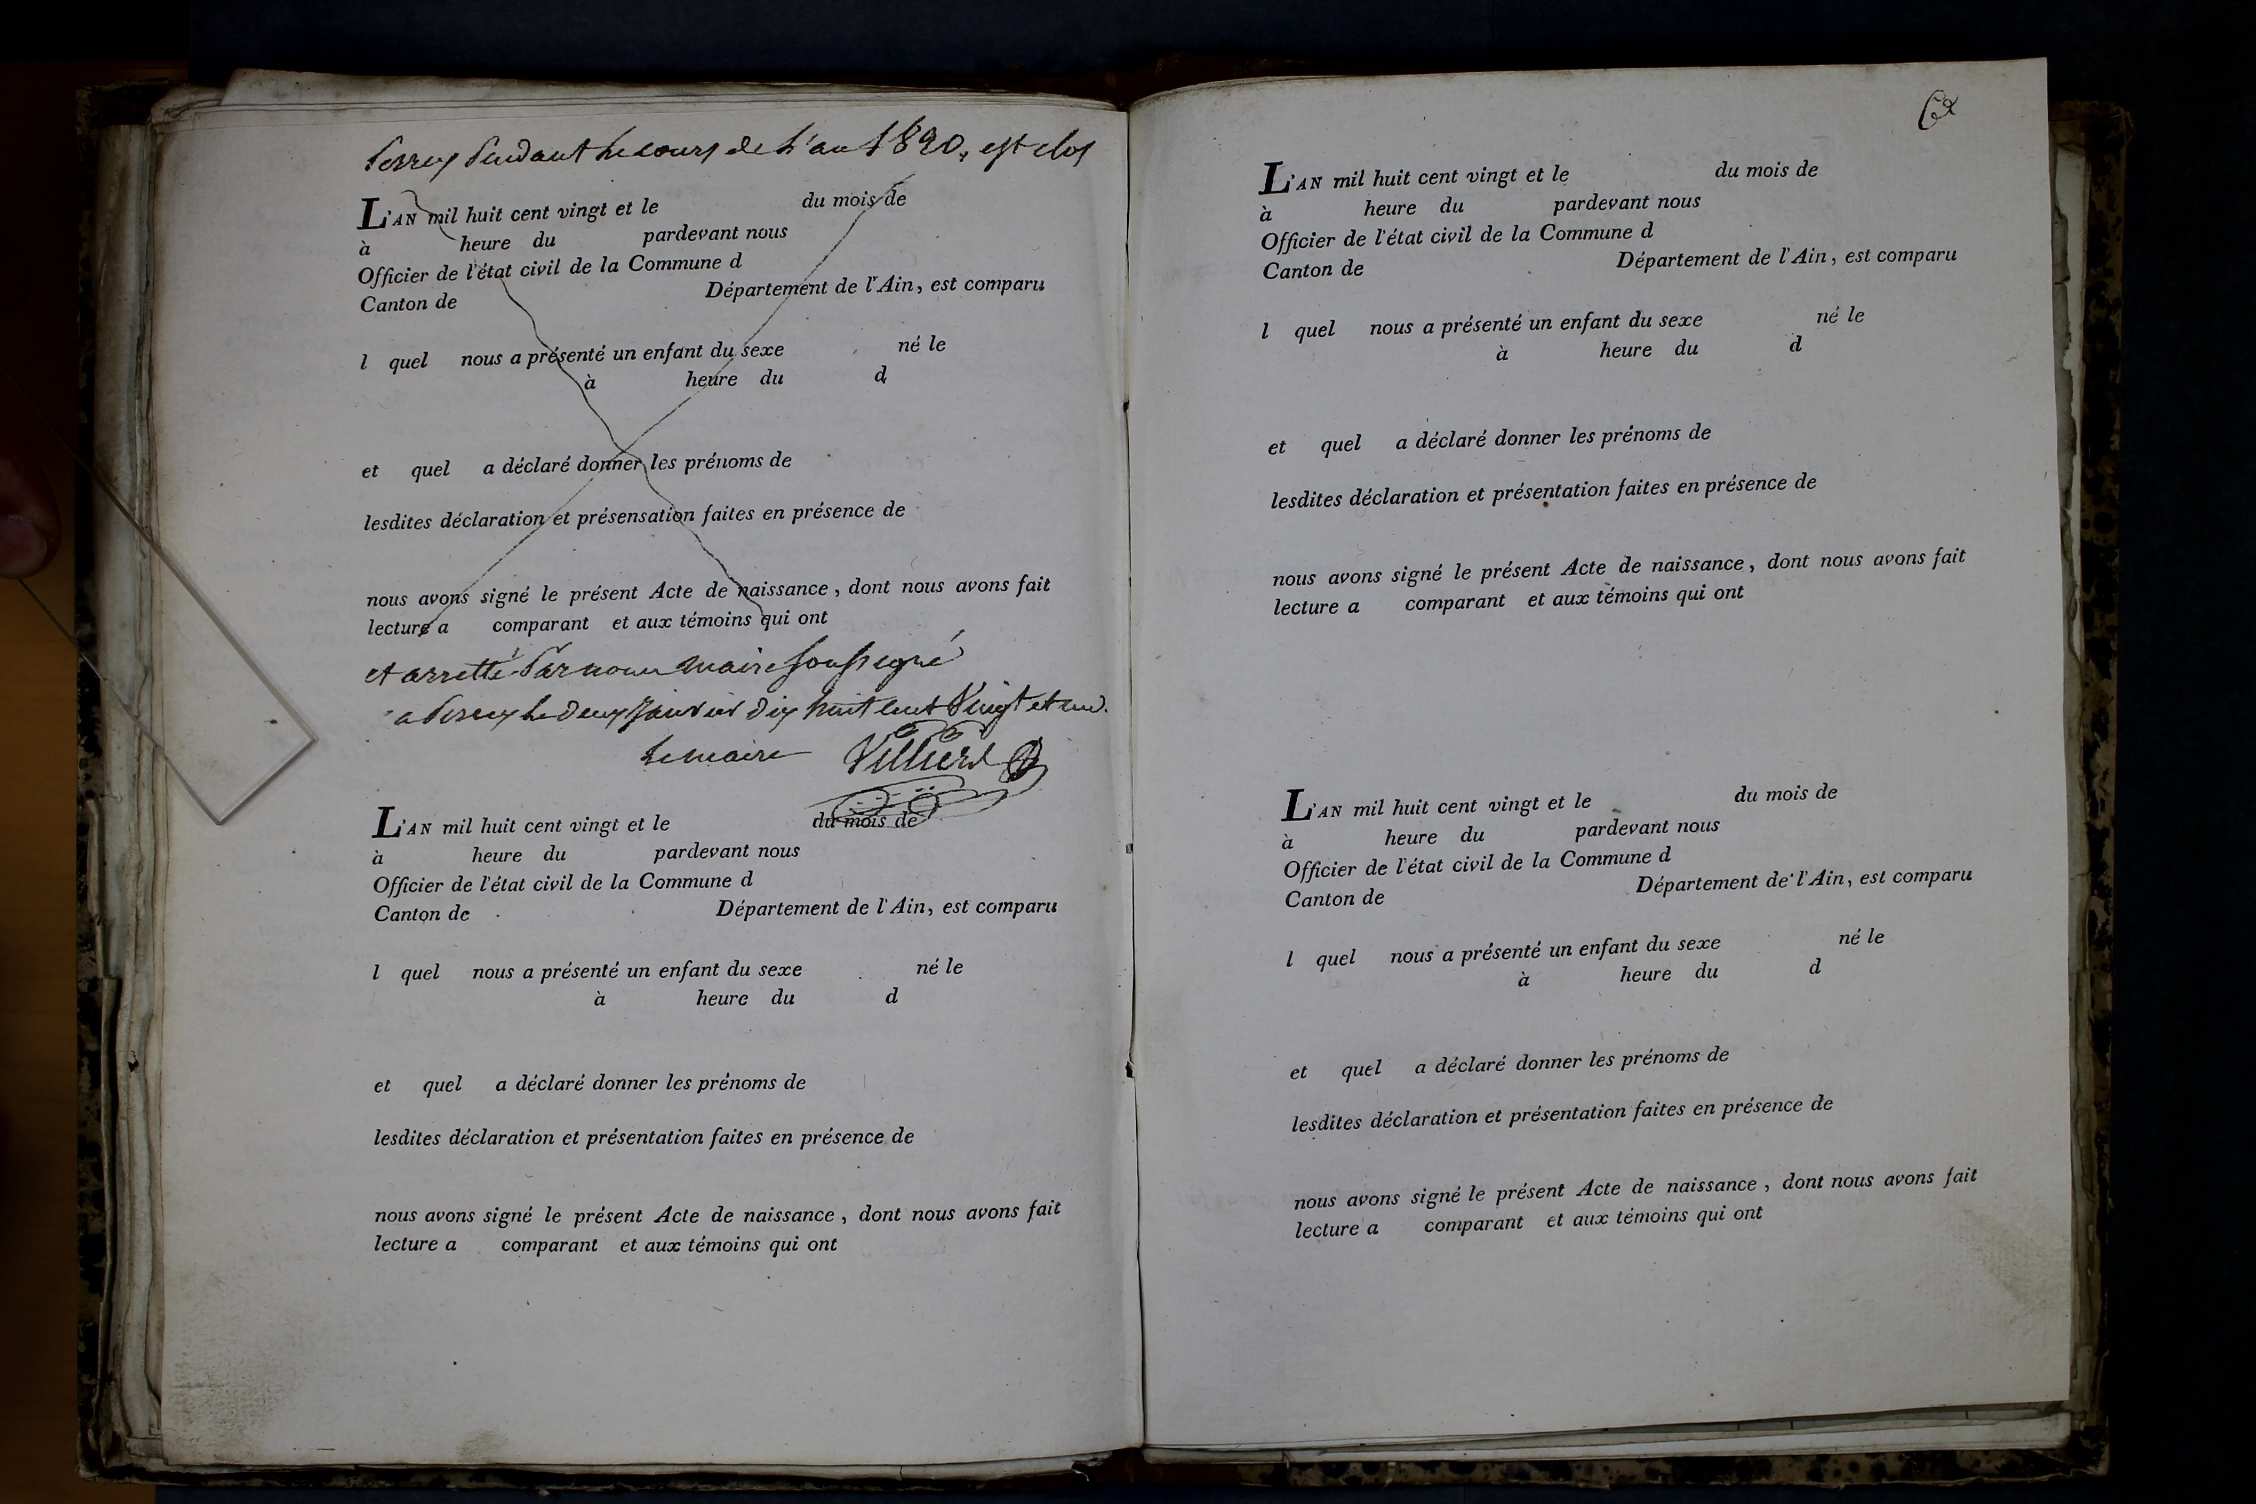 Perrex Pendant le cours de l'an 1820, est clos
L'AN mil huit cent vingt et le du mois de
à heure du pardevant nous
Officier de l'état civil de la Commune d
Canton de Département de l'Ain, est comparu
l quel nous a présenté un enfant du sexe né le
à heure du d
et quel a déclaré donner les prénoms de
lesdites déclaration et présensation faites en présence de
nous avons signé le présent Acte de naissance, dont nous avons fait
lecture a comparant et aux témoins qui ont
et arretté Par nous maire soussigné
a Perrex le deux Janvier dix huit cent Vingt et un.
le maire Villierd
L'AN mil huit cent vingt et le du mois de
à heure du pardevant nous
Officier de l'état civil de la Commune d
Canton de Département de l'Ain, est comparu
l quel nous a présenté un enfant du sexe né le
à heure du d
et quel a déclaré donner les prénoms de
lesdites déclaration et présentation faites en présence de
nous avons signé le présent Acte de naissance, dont nous avons fait
lecture a comparant et aux témoins qui ont
L'AN mil huit cent vingt et le du mois de
à heure du pardevant nous
Officier de l'état civil de la Commune d
Canton de Département de l'Ain, est comparu
l quel nous a présenté un enfant du sexe né le
à heure du d
et quel a déclaré donner les prénoms de
lesdites déclaration et présentation faites en présence de
nous avons signé le présent Acte de naissance, dont nous avons fait
lecture a comparant et aux témoins qui ont
L'AN mil huit cent vingt et le du mois de
à heure du pardevant nous
Officier de l'état civil de la Commune d
Canton de Département de l'Ain, est comparu
l quel nous a présenté un enfant du sexe né le
à heure du d
et quel a déclaré donner les prénoms de
lesdites déclaration et présentation faites en présence de
nous avons signé le présent Acte de naissance, dont nous avons fait
lecture a comparant et aux témoins qui ont